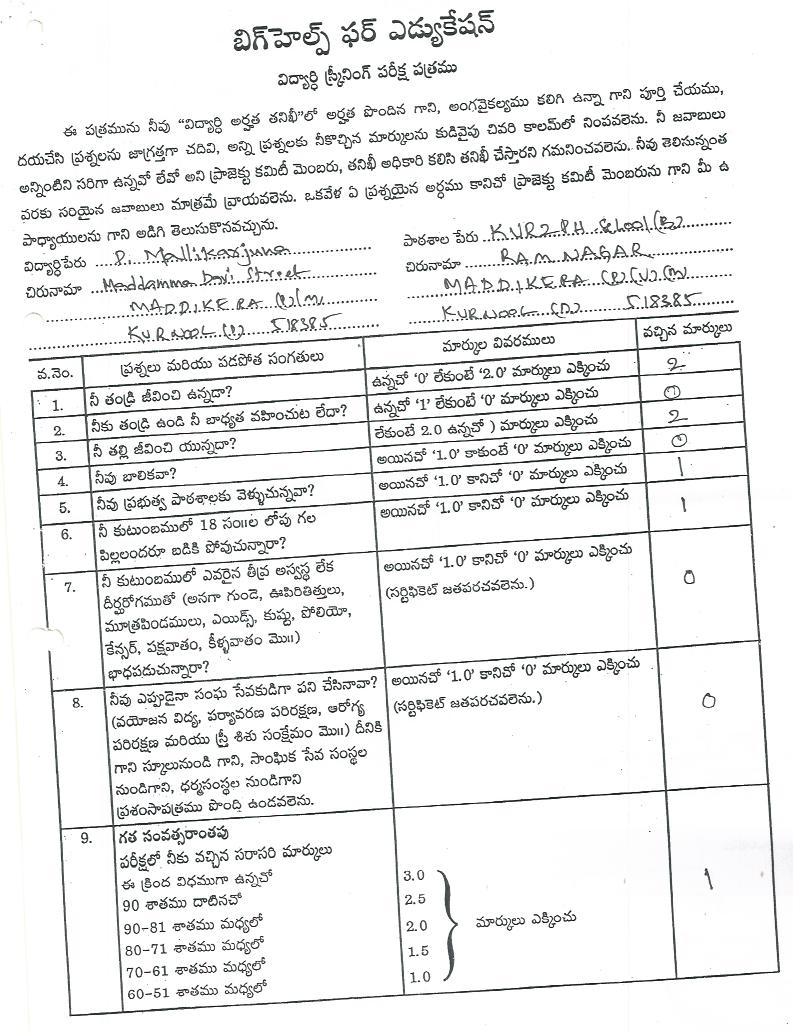 బిగ్‌హెల్ప్ ఫర్ ఎడ్యుకేషన్
విద్యార్థి స్క్రీనింగ్ పరీక్ష పత్రము
ఈ పత్రమును నీవు “విద్యార్థి అర్హత తనిఖీ”లో అర్హత పొందిన గాని, అంగవైకల్యము కలిగి ఉన్నా గాని పూర్తి చేయము,
దయచేసి ప్రశ్నలను జాగ్రత్తగా చదివి, అన్ని ప్రశ్నలకు నీకొచ్చిన మార్కులను కుడివైపు చివరి కాలమ్‌లో నింపవలెను. నీ జవాబులు
అన్నింటిని సరిగా ఉన్నవో లేవో అని ప్రాజెక్టు కమిటీ మెంబరు, తనిఖీ అధికారి కలిసి తనిఖీ చేస్తారని గమనించవలెను. నీవు తెలిసున్నంత
వరకు సరియైన జవాబులు మాత్రమే వ్రాయవలెను. ఒకవేళ ఏ ప్రశ్నయైన అర్ధము కానిచో ప్రాజెక్టు కమిటీ మెంబరును గాని మీ ఉ
పాధ్యాయులను గాని అడిగి తెలుసుకొనవచ్చును.
విద్యార్థిపేరు P. Mallikarjuna పాఠశాల పేరు KVR ZPH School (B)
చిరునామా Maddamma Davi Street చిరునామా RAM NAGAR
MADDIKERA (P) (M) MADDIKERA (P) (V) (M)
KURNOOL (D) 518385 KURNOOL (D) 518385
వ.నెం. ప్రశ్నలు మరియు పడపోత సంగతులు మార్కుల వివరములు వచ్చిన మార్కులు
1. నీ తండ్రి జీవించి ఉన్నదా? ఉన్నచో ‘0’ లేకుంటే ‘2.0’ మార్కులు ఎక్కించు 2
2. నీకు తండ్రి ఉండి నీ బాధ్యత వహించుట లేదా? ఉన్నచో ‘1’ లేకుంటే ‘0’ మార్కులు ఎక్కించు 0
3. నీ తల్లి జీవించి యున్నదా? లేకుంటే 2.0 ఉన్నచో ) మార్కులు ఎక్కించు 2
4. నీవు బాలికవా? అయినచో ‘1.0’ కాకుంటే ‘0’ మార్కులు ఎక్కించు 0
5. నీవు ప్రభుత్వ పాఠశాలకు వెళ్ళుచున్నవా? అయినచో ‘1.0’ కానిచో ‘0’ మార్కులు ఎక్కించు 1
6. నీ కుటుంబములో 18 సం॥ల లోపు గల అయినచో ‘1.0’ కానిచో ‘0’ మార్కులు ఎక్కించు 1
పిల్లలందరూ బడికి పోవుచున్నారా?
7. నీ కుటుంబములో ఎవరైన తీవ్ర అస్వస్థ లేక అయినచో ‘1.0’ కానిచో ‘0’ మార్కులు ఎక్కించు 0
దీర్ఘరోగముతో (అనగా గుండె, ఊపిరితిత్తులు, (సర్టిఫికెట్ జతపరచవలెను.)
మూత్రపిండములు, ఎయిడ్స్, కుష్టు, పోలియో,
కేన్సర్, పక్షవాతం, కీళ్ళవాతం మొ॥)
భాధపడుచున్నారా?
8. నీవు ఎప్పుడైనా సంఘ సేవకుడిగా పని చేసినావా? అయినచో ‘1.0’ కానిచో ‘0’ మార్కులు ఎక్కించు 0
(వయోజన విద్య, పర్యావరణ పరిరక్షణ, ఆరోగ్య (సర్టిఫికెట్ జతపరచవలెను.)
పరిరక్షణ మరియు స్త్రీ శిశు సంక్షేమం మొ॥) దీనికి
గాని స్కూలునుండి గాని, సాంఘిక సేవ సంస్థల
నుండిగాని, ధర్మసంస్థల నుండిగాని
ప్రశంసాపత్రము పొంది ఉండవలెను.
9. గత సంవత్సరాంతపు
పరీక్షలో నీకు వచ్చిన సరాసరి మార్కులు
ఈ క్రింద విధముగా ఉన్నచో 3.0 1
90 శాతము దాటినచో 2.5
90-81 శాతము మధ్యలో 2.0 మార్కులు ఎక్కించు
80-71 శాతము మధ్యలో 1.5
70-61 శాతము మధ్యలో 1.0
60-51 శాతము మధ్యలో